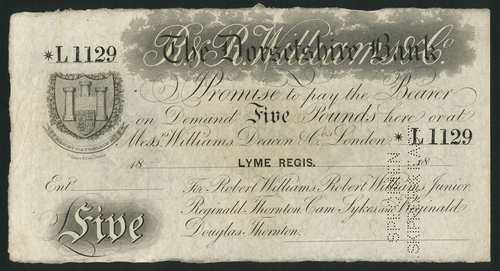 *L1129
R & R Williams & Co
The Dorsetshire Bank
I Promise to pay the Bearer
on Demand Five Pounds here or at
Messrs Williams, Deacon & Cos London.
*L1129
18
LYME REGIS.
18
Entd
For Robert Williams, Robert Williams Junior,
Reginald Thornton, Cam Sykes and Reginald
Douglas Thornton.
Five
SPECIMEN